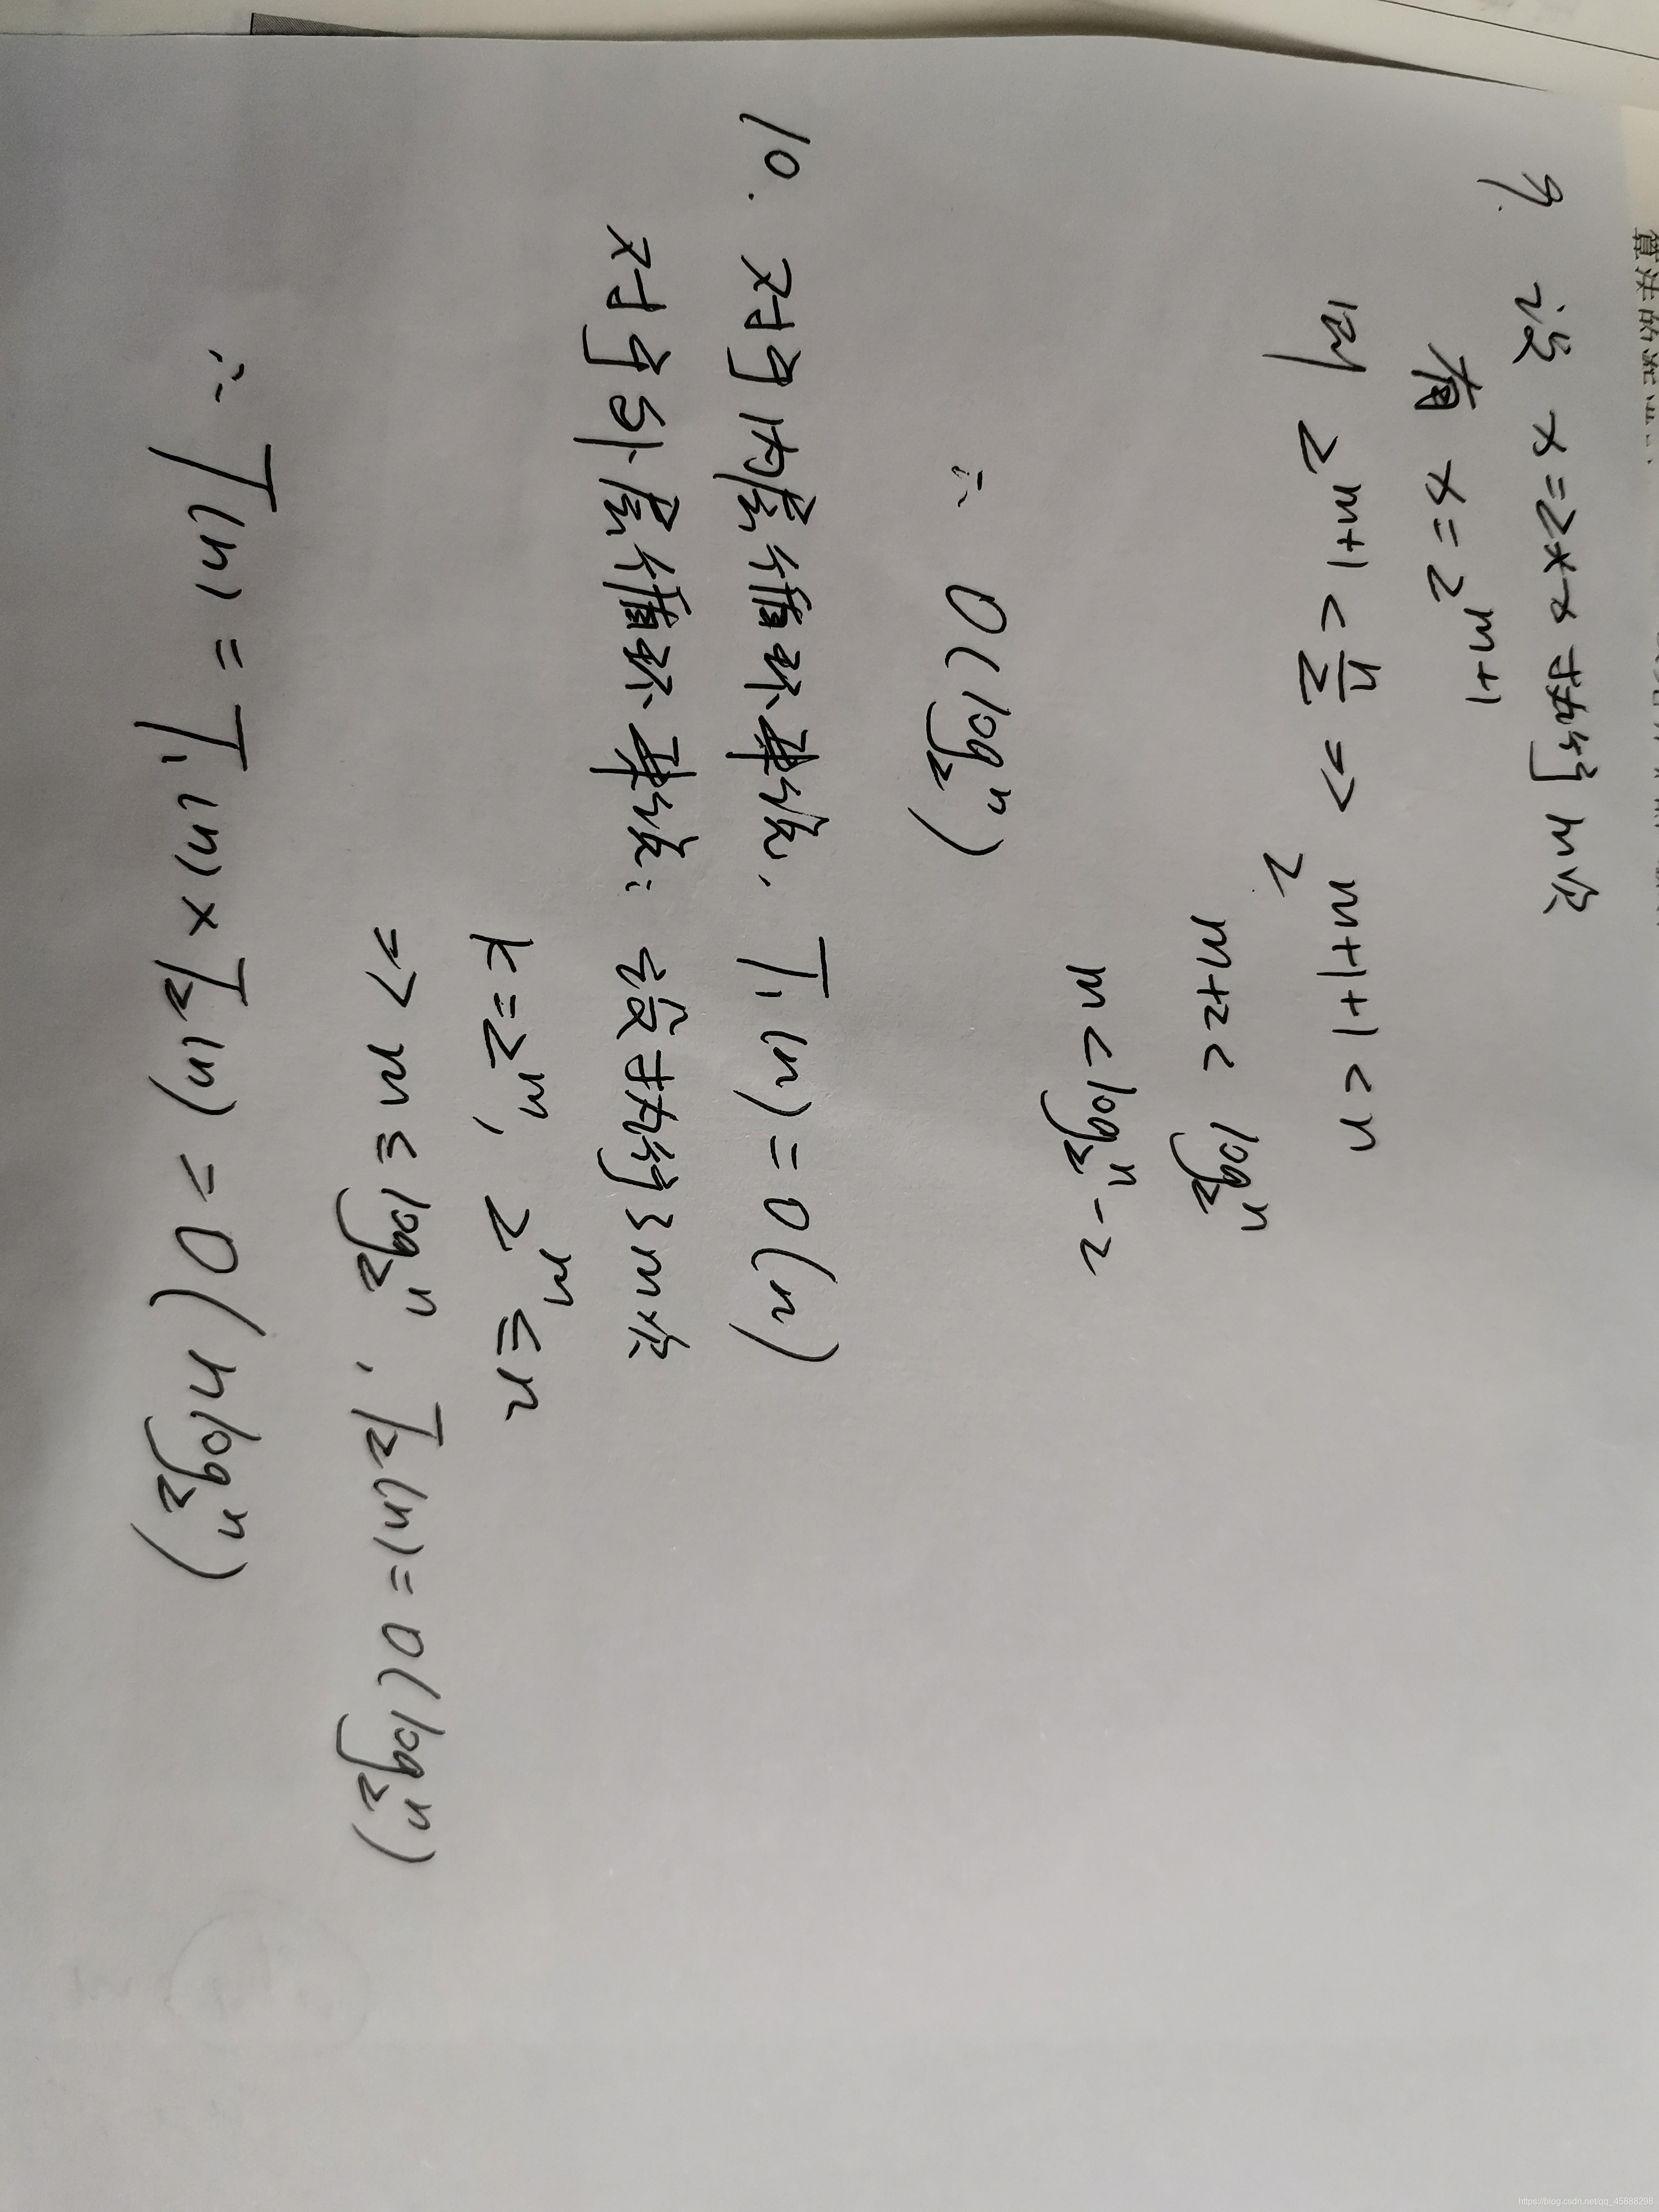 9. 设 x=2*x 执行 m次
有 x=2^{m+1}
即 2^{m+1} < \frac{n}{2} => 2^{m+1+1} < n
m+2 < log_2^n
m < log_2^n - 2
∴ O(log_2^n)
10. 对于内层循环来说, T_1(n) = O(n)
对于外层循环来说: 设执行 m次
k=2^m, 2^m ≤ n
=> m ≤ log_2^n, T_2(n) = O(log_2^n)
∴ T(n) = T_1(n) × T_2(n) = O(n log_2^n)
https://blog.csdn.net/qq_45888298